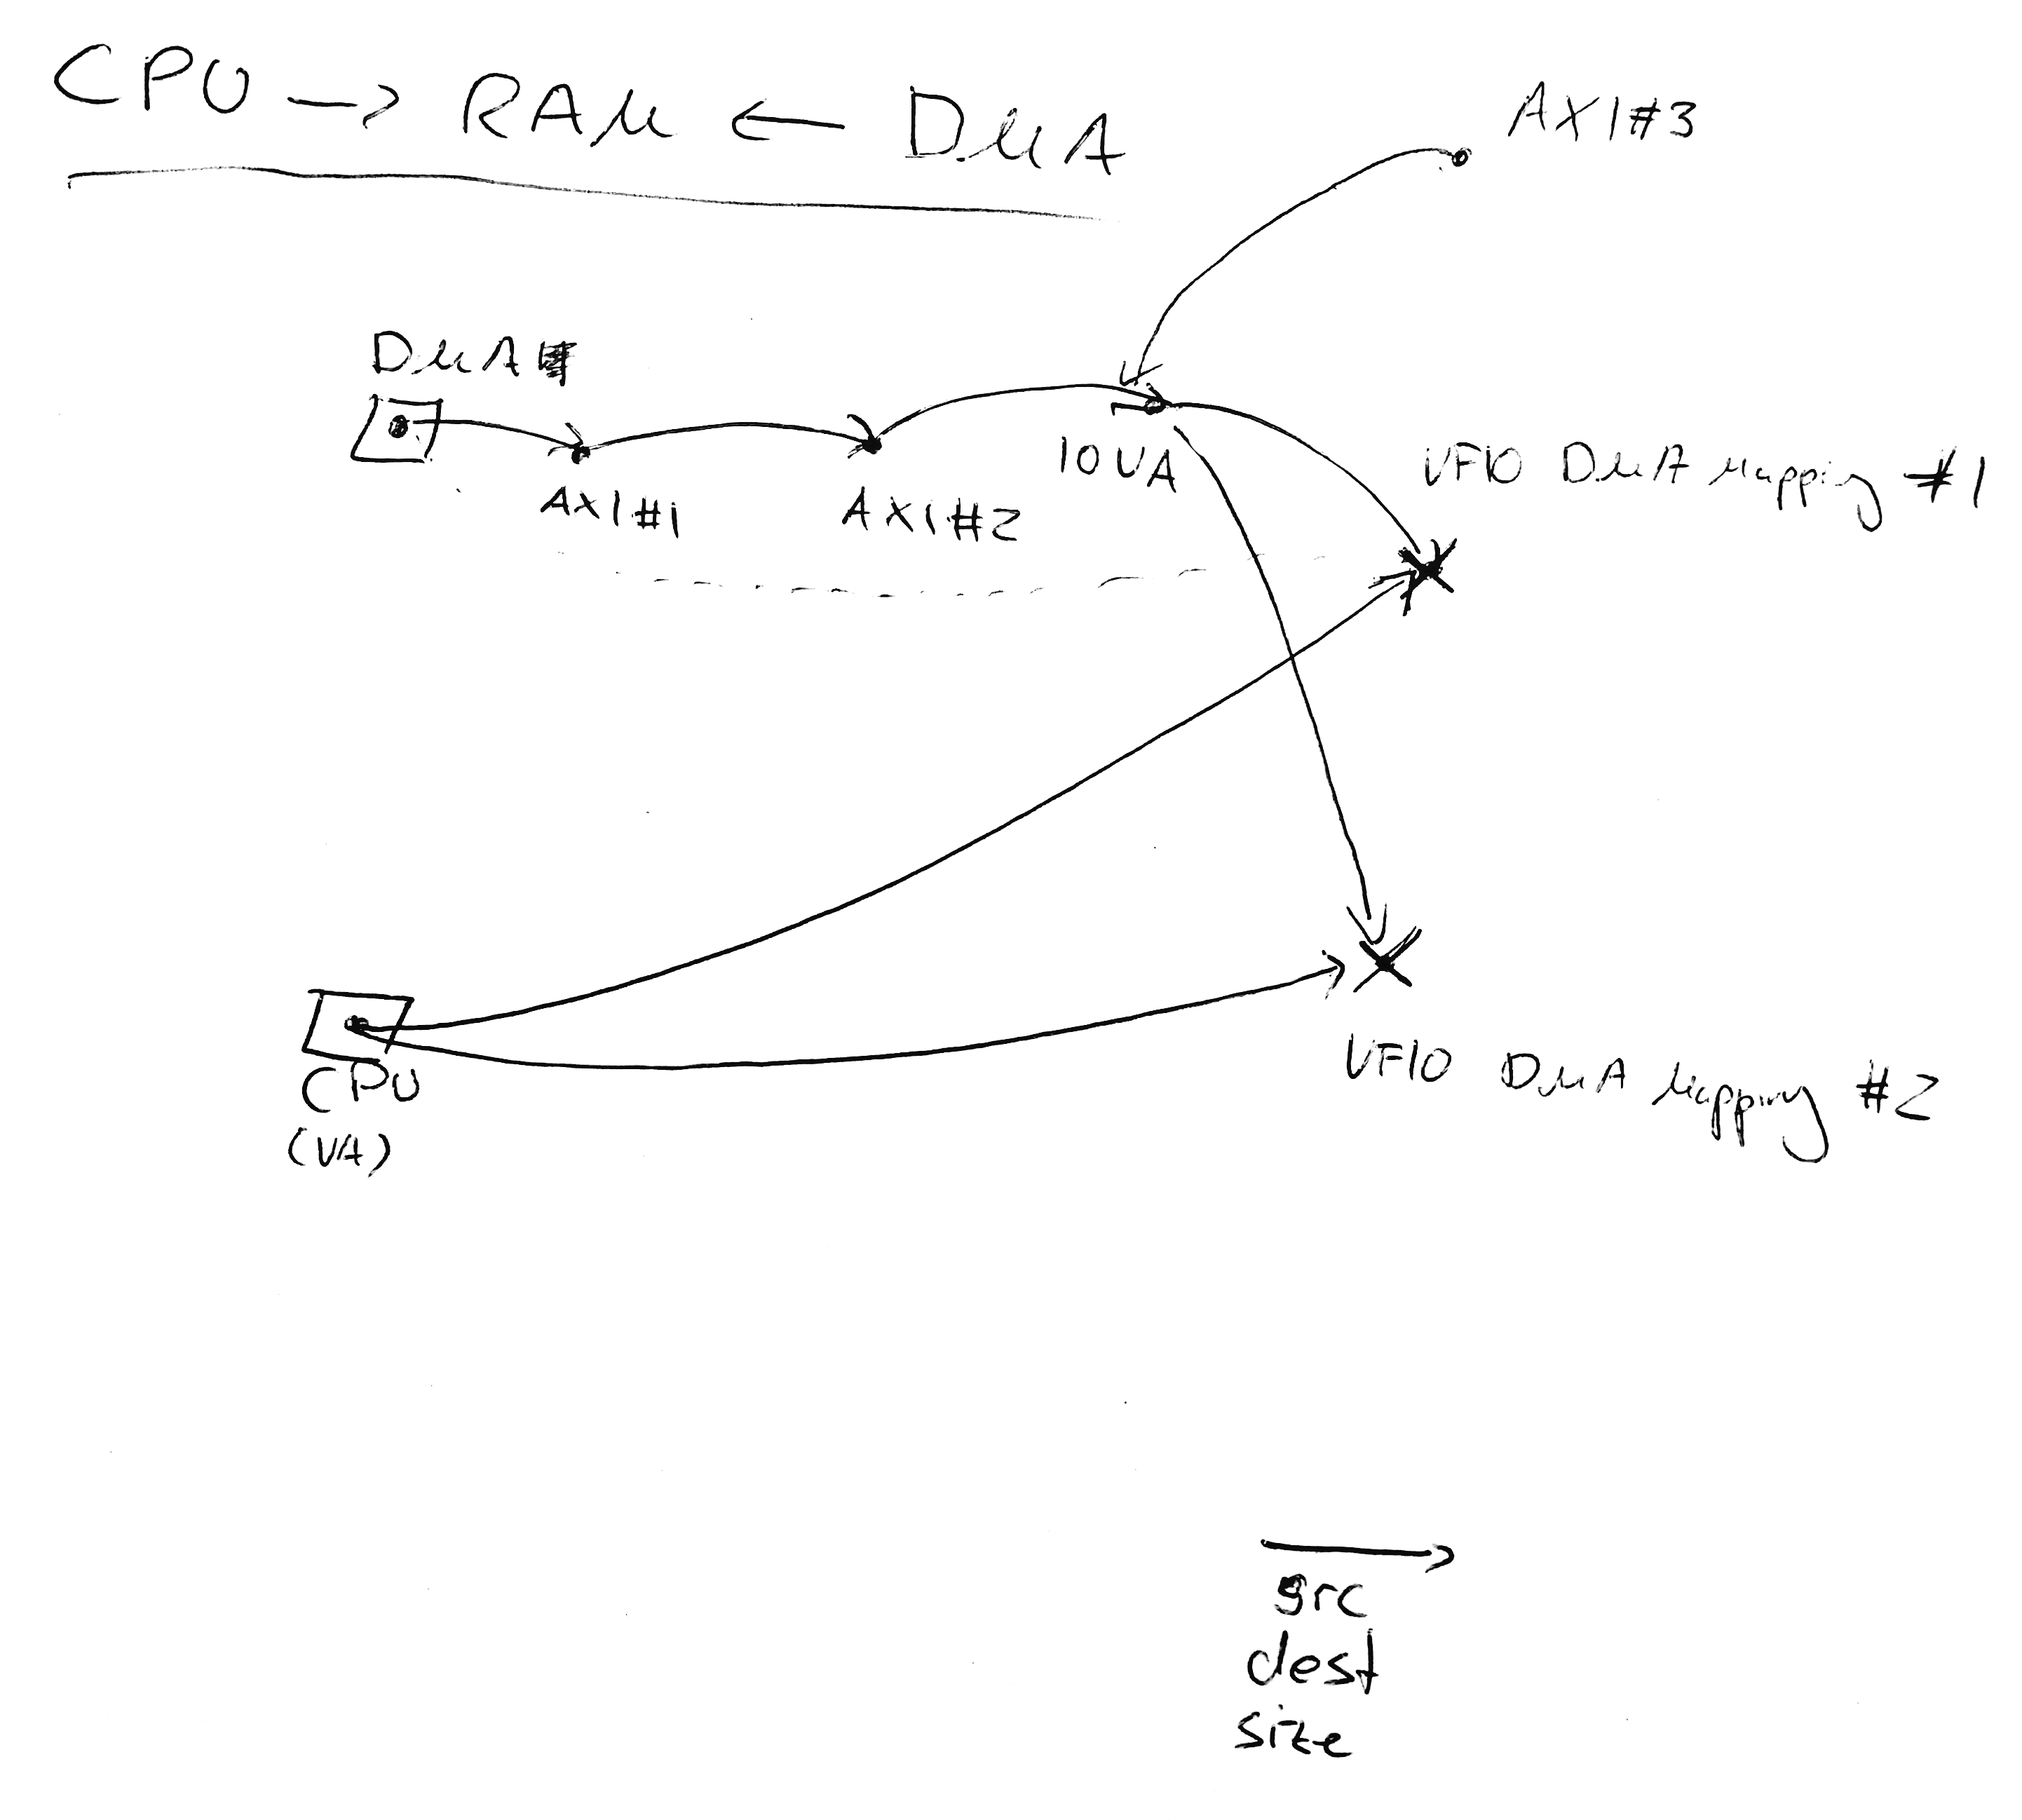 CPU → RAM ← DMA
AXI#3
DMA
AXI#1
AXI#2
IOVA
VFIO DMA Mapping #1
CPU
(VA)
VFIO DMA Mapping #2
src
dest
size